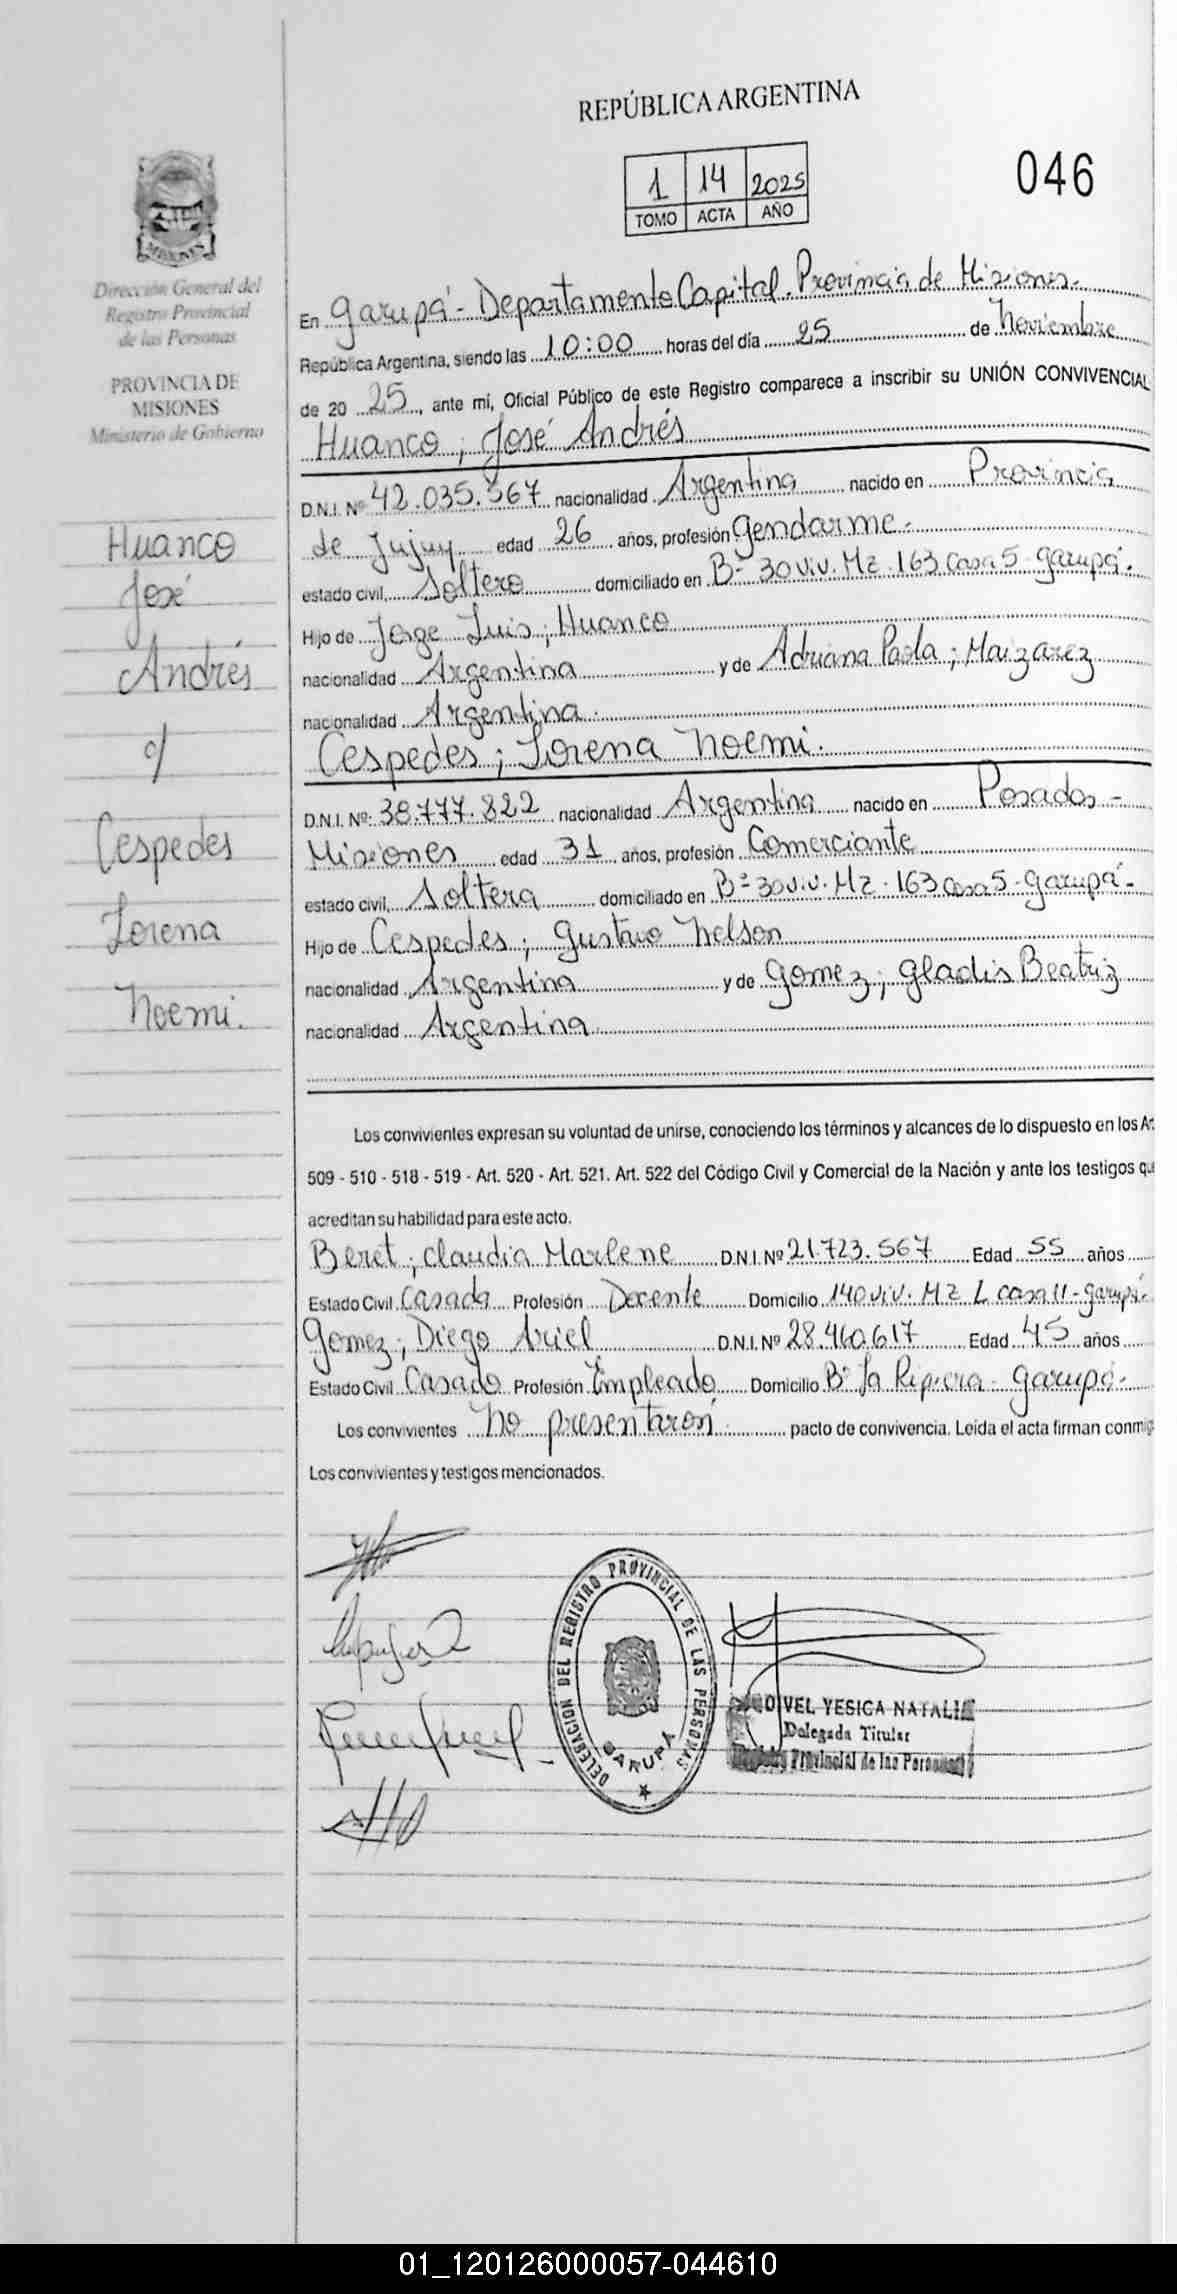 REPÚBLICA ARGENTINA
1 14 2025
TOMO ACTA AÑO
046
MISIONES
Dirección General del
Registro Provincial
de las Personas
PROVINCIA DE
MISIONES
Ministerio de Gobierno
Huanco
José
Andrés
c/
Cespedes
Lorena
Noemi.
En Garupá - Departamento Capital. Provincia de Misiones.
República Argentina, siendo las 10:00 horas del día 25 de Noviembre
de 20 25, ante mí, Oficial Público de este Registro comparece a inscribir su UNIÓN CONVIVENCIAL
Huanco ; José Andrés
D.N.I. Nº 42.035.567 nacionalidad Argentina nacido en Provincia
de Jujuy edad 26 años, profesión Gendarme.
estado civil, Soltero domiciliado en Bº 30 viv. Mz. 163 Casa 5 - Garupá.
Hijo de Jorge Luis ; Huanco
nacionalidad Argentina y de Adriana Paola ; Maizarez
nacionalidad Argentina.
Cespedes ; Lorena Noemi.
D.N.I. Nº: 38.777.822 nacionalidad Argentina nacido en Posadas -
Misiones edad 31 años, profesión Comerciante
estado civil, Soltera domiciliado en Bº 30 viv. Mz. 163 casa 5 - Garupá -
Hijo de Cespedes ; Gustavo Nelson
nacionalidad Argentina y de Gomez ; Gladis Beatriz
nacionalidad Argentina
Los convivientes expresan su voluntad de unirse, conociendo los términos y alcances de lo dispuesto en los
509 - 510 - 518 - 519 - Art. 520 - Art. 521. Art. 522 del Código Civil y Comercial de la Nación y ante los testigos
acreditan su habilidad para este acto.
Beret ; Claudia Marlene D.N.I. Nº 21.723.567 Edad 55 años
Estado Civil Casada Profesión Docente Domicilio 140 viv. Mz L casa 11 - Garupá.
Gomez ; Diego Ariel D.N.I. Nº 28.460.617 Edad 45 años
Estado Civil Casado Profesión Empleado Domicilio Bº La Ripiera - Garupá.
Los convivientes No presentaron pacto de convivencia. Leída el acta firman
Los convivientes y testigos mencionados.
DELEGACION DEL REGISTRO PROVINCIAL DE LAS PERSONAS
GARUPÁ
YESICA NATALIA
Delegada Titular
Provincial de las Personas
01_120126000057-044610